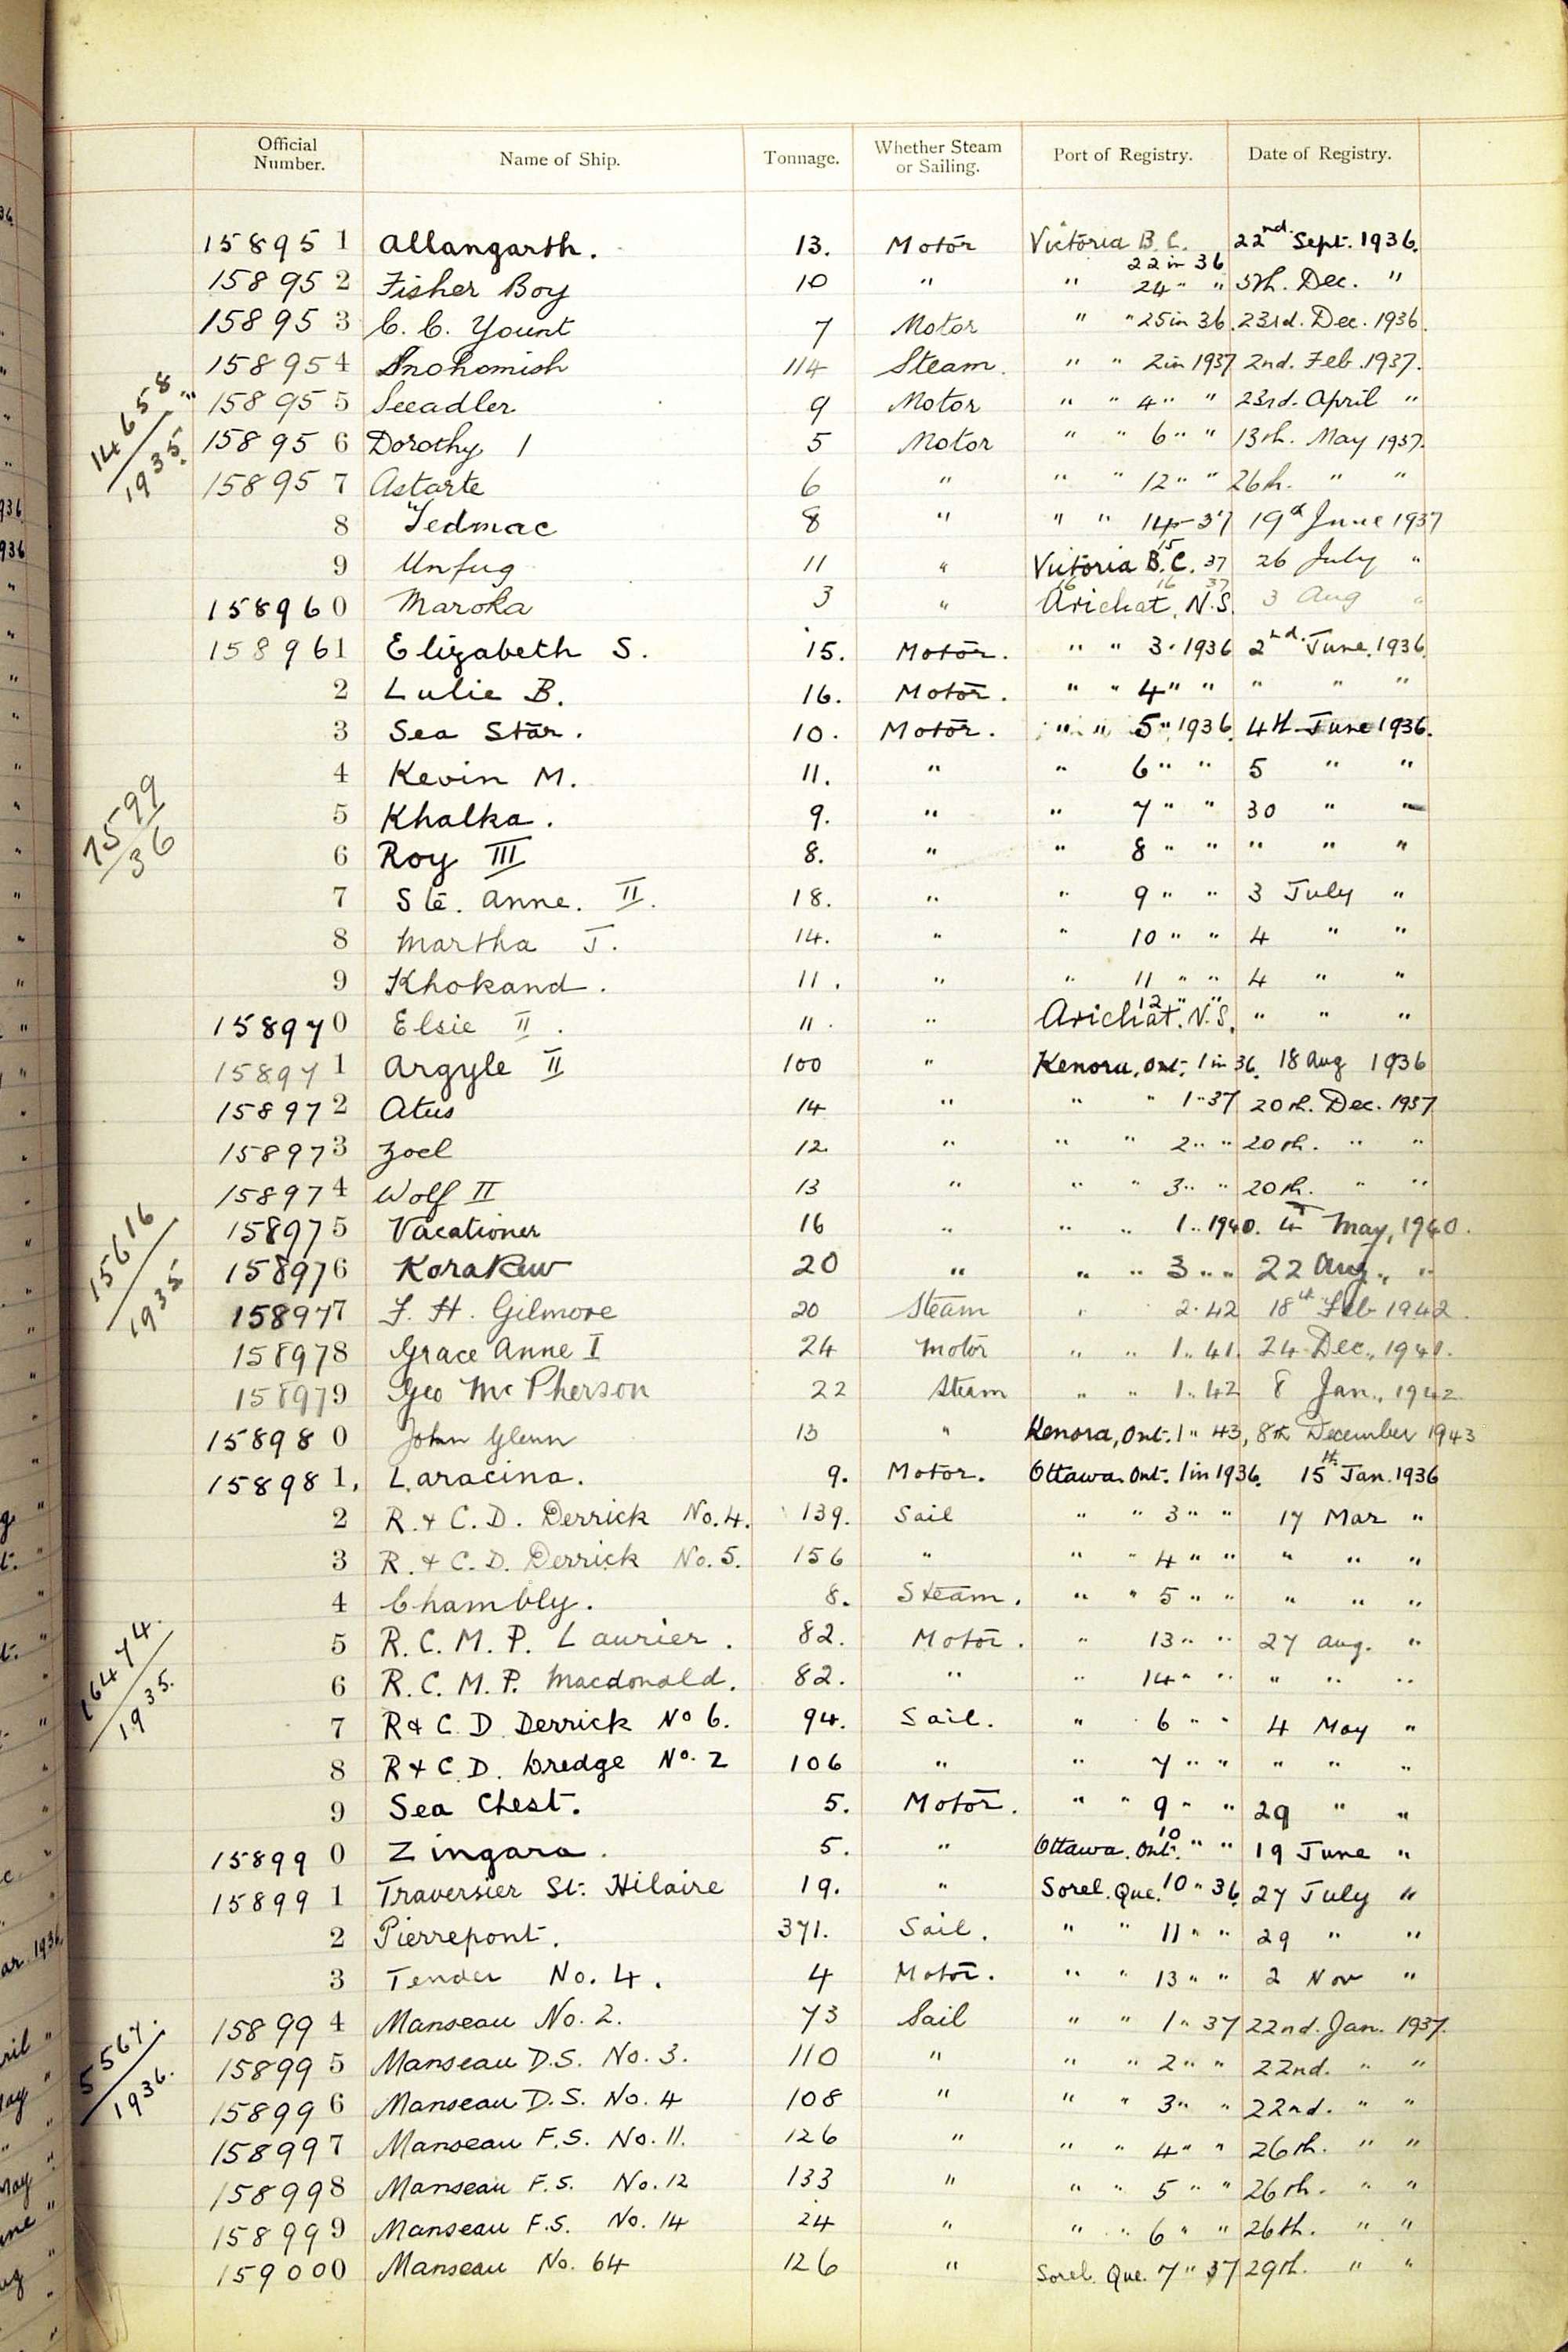 Official Number. Name of Ship. Tonnage. Whether Steam or Sailing. Port of Registry. Date of Registry.
158951 Allangarth. 13. Motor Victoria B.C. 22 in 36 22nd. Sept. 1936.
158952 Fisher Boy 10 " " 24 " " 5th. Dec. "
158953 C. C. Yount 7 Motor " " 25 in 36. 23rd. Dec. 1936.
158954 Snohomish 114 Steam. " " 2 in 1937 2nd. Feb. 1937.
14658/1935. " 158955 Seeadler 9 Motor " " 4 " " 23rd. April "
158956 Dorothy I 5 Motor " " 6 " " 13th. May 1937.
158957 Astarte 6 " " " 12 " " 26th. " "
8 Tedmac 8 " " " 14 - 37 19th June 1937
9 Unfug 11 " Victoria B.C. 15 37 26 July "
158960 Maroka 3 " Arichat, N.S. 16 16 37 3 Aug "
158961 Elizabeth S. 15. Motor. " " 3 " 1936 2nd. June. 1936
2 Lulie B. 16. Motor. " " 4 " " " " "
3 Sea Star. 10. Motor. " " 5 " 1936. 4th June 1936.
4 Kevin M. 11. " " 6 " " 5 " "
7599/36 5 Khalka. 9. " " 7 " " 30 " "
6 Roy III 8. " " 8 " " " " "
7 Ste. Anne. II. 18. " " 9 " " 3 July "
8 Martha J. 14. " " 10 " " 4 " "
9 Khokand. 11. " " 11 " " 4 " "
158970 Elsie II. 11. " Arichat. N.S. 12 " " " " "
158971 Argyle II 100 " Kenora, Ont. 1 in 36. 18 Aug 1936
158972 Atus 14 " " " 1 " 37 20th. Dec. 1937
158973 Zoel 12 " " " 2 " " 20th. " "
158974 Wolf II 13 " " " 3 " " 20th. " "
15616/1935 158975 Vacationer 16 " " " 1 " 1940. 4th May, 1940.
158976 20 " " " 3 " " 22 Aug., "
158977 F. H. Gilmore 20 Steam " 2 " 42 18th Feb 1942.
158978 Grace Anne I 24 Motor " " 1 " 41. 24 Dec., 1941.
158979 Geo McPherson 22 Steam " " 1 " 42 8 Jan., 1942
158980 John Glenn 13 " Kenora, Ont. 1 " 43, 8th December 1943
158981, Laracina. 9. Motor. Ottawa. Ont. 1 in 1936. 15th Jan. 1936
2 R. & C. D. Derrick No. 4. 139. Sail " " 3 " " 17 Mar "
3 R. & C. D. Derrick No. 5. 156 " " " 4 " " " " "
4 Chambly. 8. Steam. " " 5 " " " " "
16474./1935. 5 R. C. M. P. Laurier. 82. Motor. " 13 " " 27 Aug. "
6 R. C. M. P. Macdonald. 82. " " 14 " " " " "
7 R & C. D Derrick No 6. 94. Sail. " 6 " " 4 May "
8 R & C. D. Dredge No. 2 106 " " 7 " " " " "
9 Sea Chest. 5. Motor. " " 9 " " 29 " "
158990 Zingara. 5. " Ottawa. Ont. 10 " " 19 June "
158991 Traversier St. Hilaire 19. " Sorel. Que. 10 " 36. 27 July "
2 Pierrepont. 371. Sail. " " 11 " " 29 " "
3 Tender No. 4. 4 Motor. " " 13 " " 2 Nov "
158994 Manseau No. 2. 73 Sail " " 1 " 37 22nd. Jan. 1937.
5567./1936. 158995 Manseau D.S. No. 3. 110 " " " 2 " " 22nd. " "
158996 Manseau D.S. No. 4 108 " " " 3 " " 22nd. " "
158997 Manseau F.S. No. 11. 126 " " " 4 " " 26th. " "
158998 Manseau F.S. No. 12 133 " " " 5 " " 26th. " "
158999 Manseau F.S. No. 14 24 " " " 6 " " 26th. " "
159000 Manseau No. 64 126 " Sorel. Que. 7 " 37 29th. " "